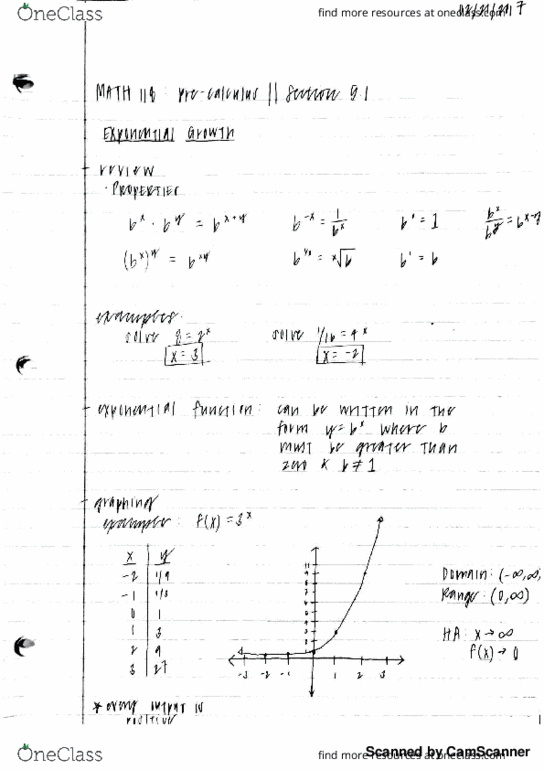 OneClass
find more resources at oneclass.com
02/21/2017
MATH 118: pre-calculus || Section 5.1
Exponential Growth
review
· PROPERTIES
b^x · b^y = b^(x+y)
b^-x = 1/b^x
b^0 = 1
b^x/b^y = b^(x-y)
(b^x)^y = b^xy
b^(1/x) = x√b
b^1 = b
examples:
solve 8 = 2^x
x = 3
solve 1/16 = 4^x
x = -2
exponential function: can be written in the
form y = b^x where b
must be greater than
zero & b ≠ 1
graphing
example: f(x) = 3^x
x y
-2 1/9
-1 1/3
0 1
1 3
2 9
3 27
-3 -2 -1 1 2 3
Domain: (-∞,∞)
Range: (0,∞)
HA: x → ∞
f(x) → 0
* every output is
positive
OneClass
find more resources at oneclass.com
Scanned by CamScanner